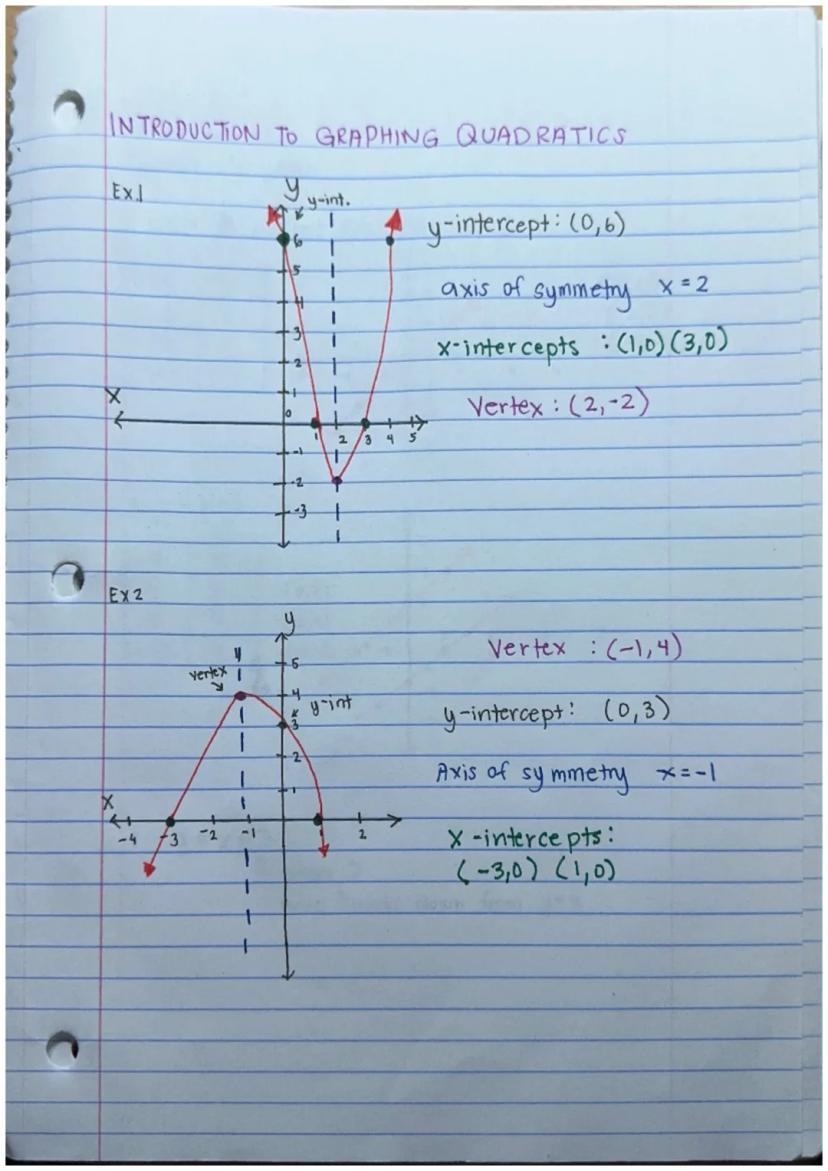 INTRODUCTION TO GRAPHING QUADRATICS
Ex.1
y
y-int.
6
5
4
3
2
1
0
X
1 2 3 4 5
-1
-2
-3
y-intercept: (0,6)
axis of symmetry x=2
x-intercepts : (1,0) (3,0)
Vertex : (2,-2)
Ex 2
y
5
vertex
4
y-int
3
2
1
X
-4 -3 -2 -1 1 2
Vertex : (-1,4)
y-intercept: (0,3)
Axis of symmetry x=-1
X-intercepts:
(-3,0) (1,0)